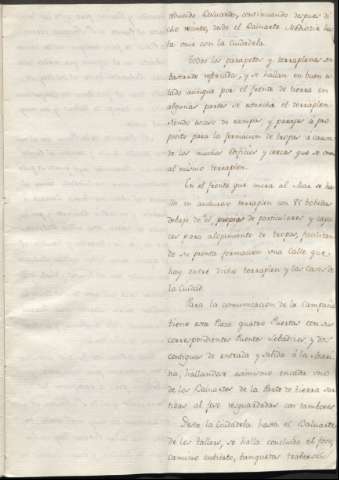 Baluartes, continuando despues
cho desde el Baluarte
la une con la Ciudadela.
Todos los parapetos y terraplenes son
bastante reforzados, y se hallan en buen es-
tado aunque por el frente de tierra en
algunas partes se estrecha el terraplen
siendo escaso de rampas y parajes a pro-
posito para la formacion de tropas a causa
de los muchos Edificios y cercas que se unen
al mismo terraplen.
En el frente que mira al Mar se ha-
lla un anchuroso terraplen con 85 bobedas
debajo de el, propias de particulares y capa-
ces para alojamiento de tropas, facilitan-
do su pronta formacion una Calle que
hay entre dicho terraplen y las Casas de
la Ciudad.
Para la comunicacion de la Campaña
tiene esta Plaza quatro Puertas con sus
correspondientes Puentes lebadizos, y dos
contiguas de entrada y salida á la Mari-
na, hallandose asimismo en cada uno
de los Baluartes de la Parte de tierra sur-
tidas al foso resguardadas con tambores
Desde la Ciudadela hasta el Baluarte
de los Tallers, se halla concluido el foso,
camino cubierto, banquetas